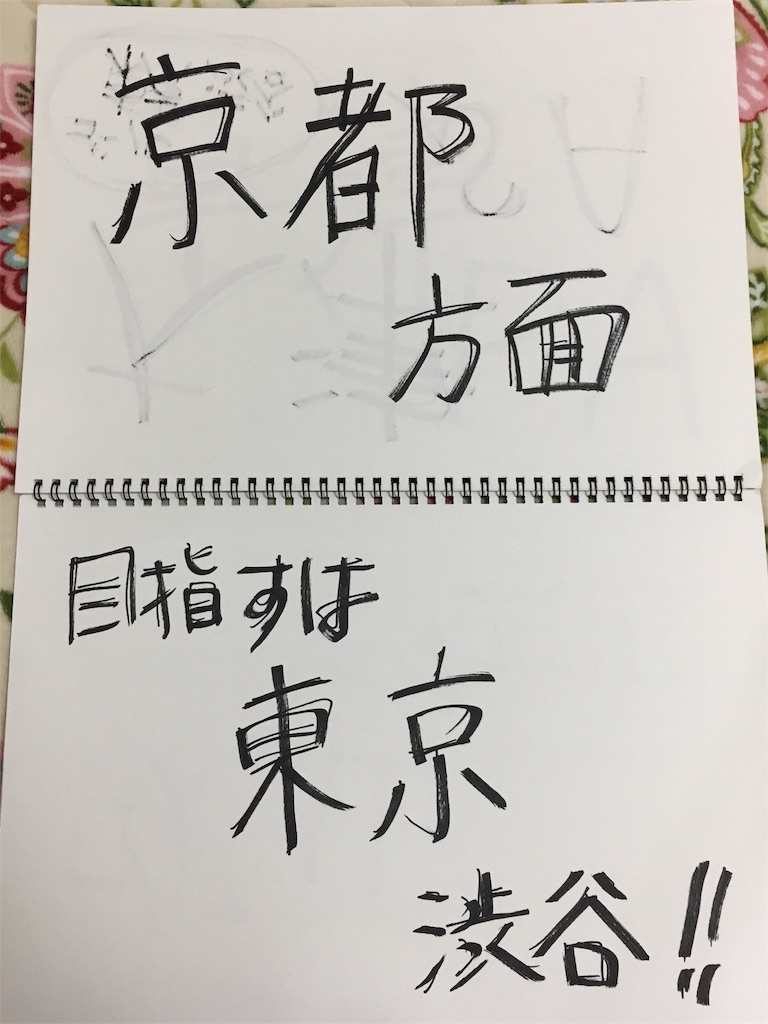 京都
方面
目指すは
東京
渋谷!!